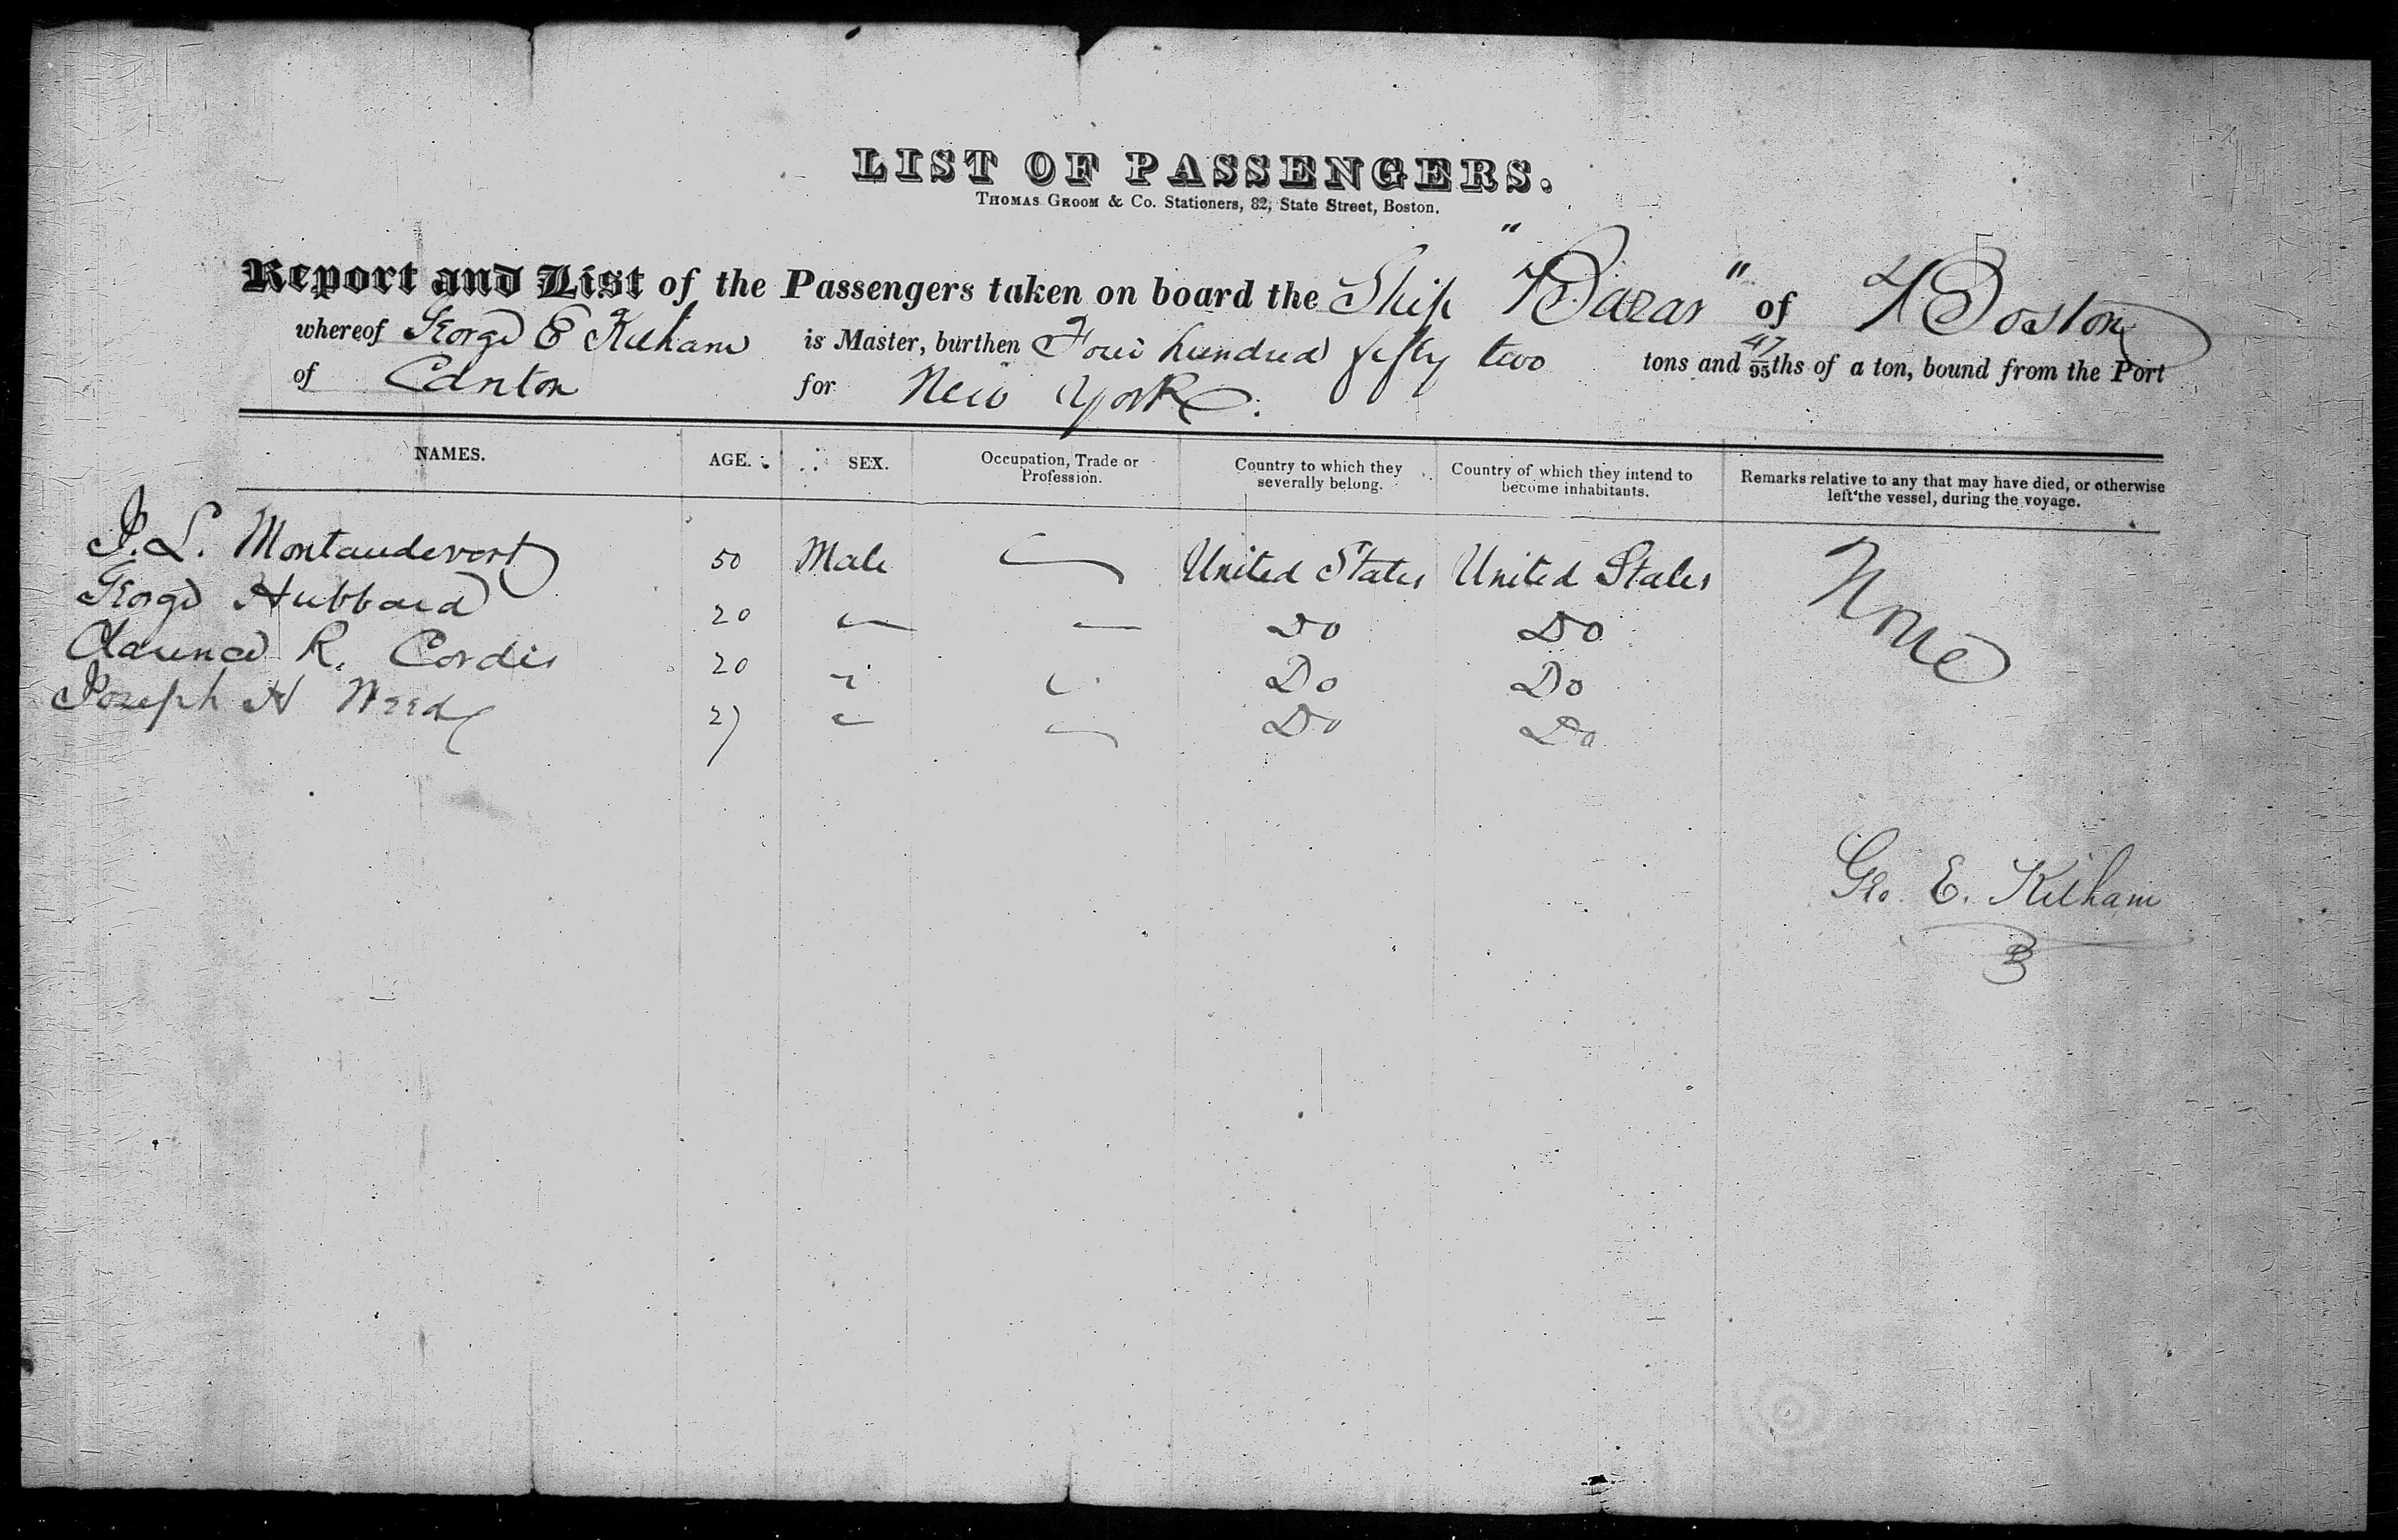 LIST OF PASSENGERS.
THOMAS GROOM & Co. Stationers, 82, State Street, Boston.
Report and List of the Passengers taken on board the Ship "Bazar" of Boston
whereof George E Kilham is Master, burthen Four hundred fifty two tons and 47/95ths of a ton, bound from the Port
of Canton for New York.
NAMES. AGE. SEX. Occupation, Trade or Profession. Country to which they severally belong. Country of which they intend to become inhabitants. Remarks relative to any that may have died, or otherwise left the vessel, during the voyage.
J. L. Montaudevort 50 Male — United States United States None
George Hubbard 20 — — Do Do
Clarence R. Cordis 20 " " Do Do
Joseph H Weed 27 " — Do Do
Geo. E. Kilham
3